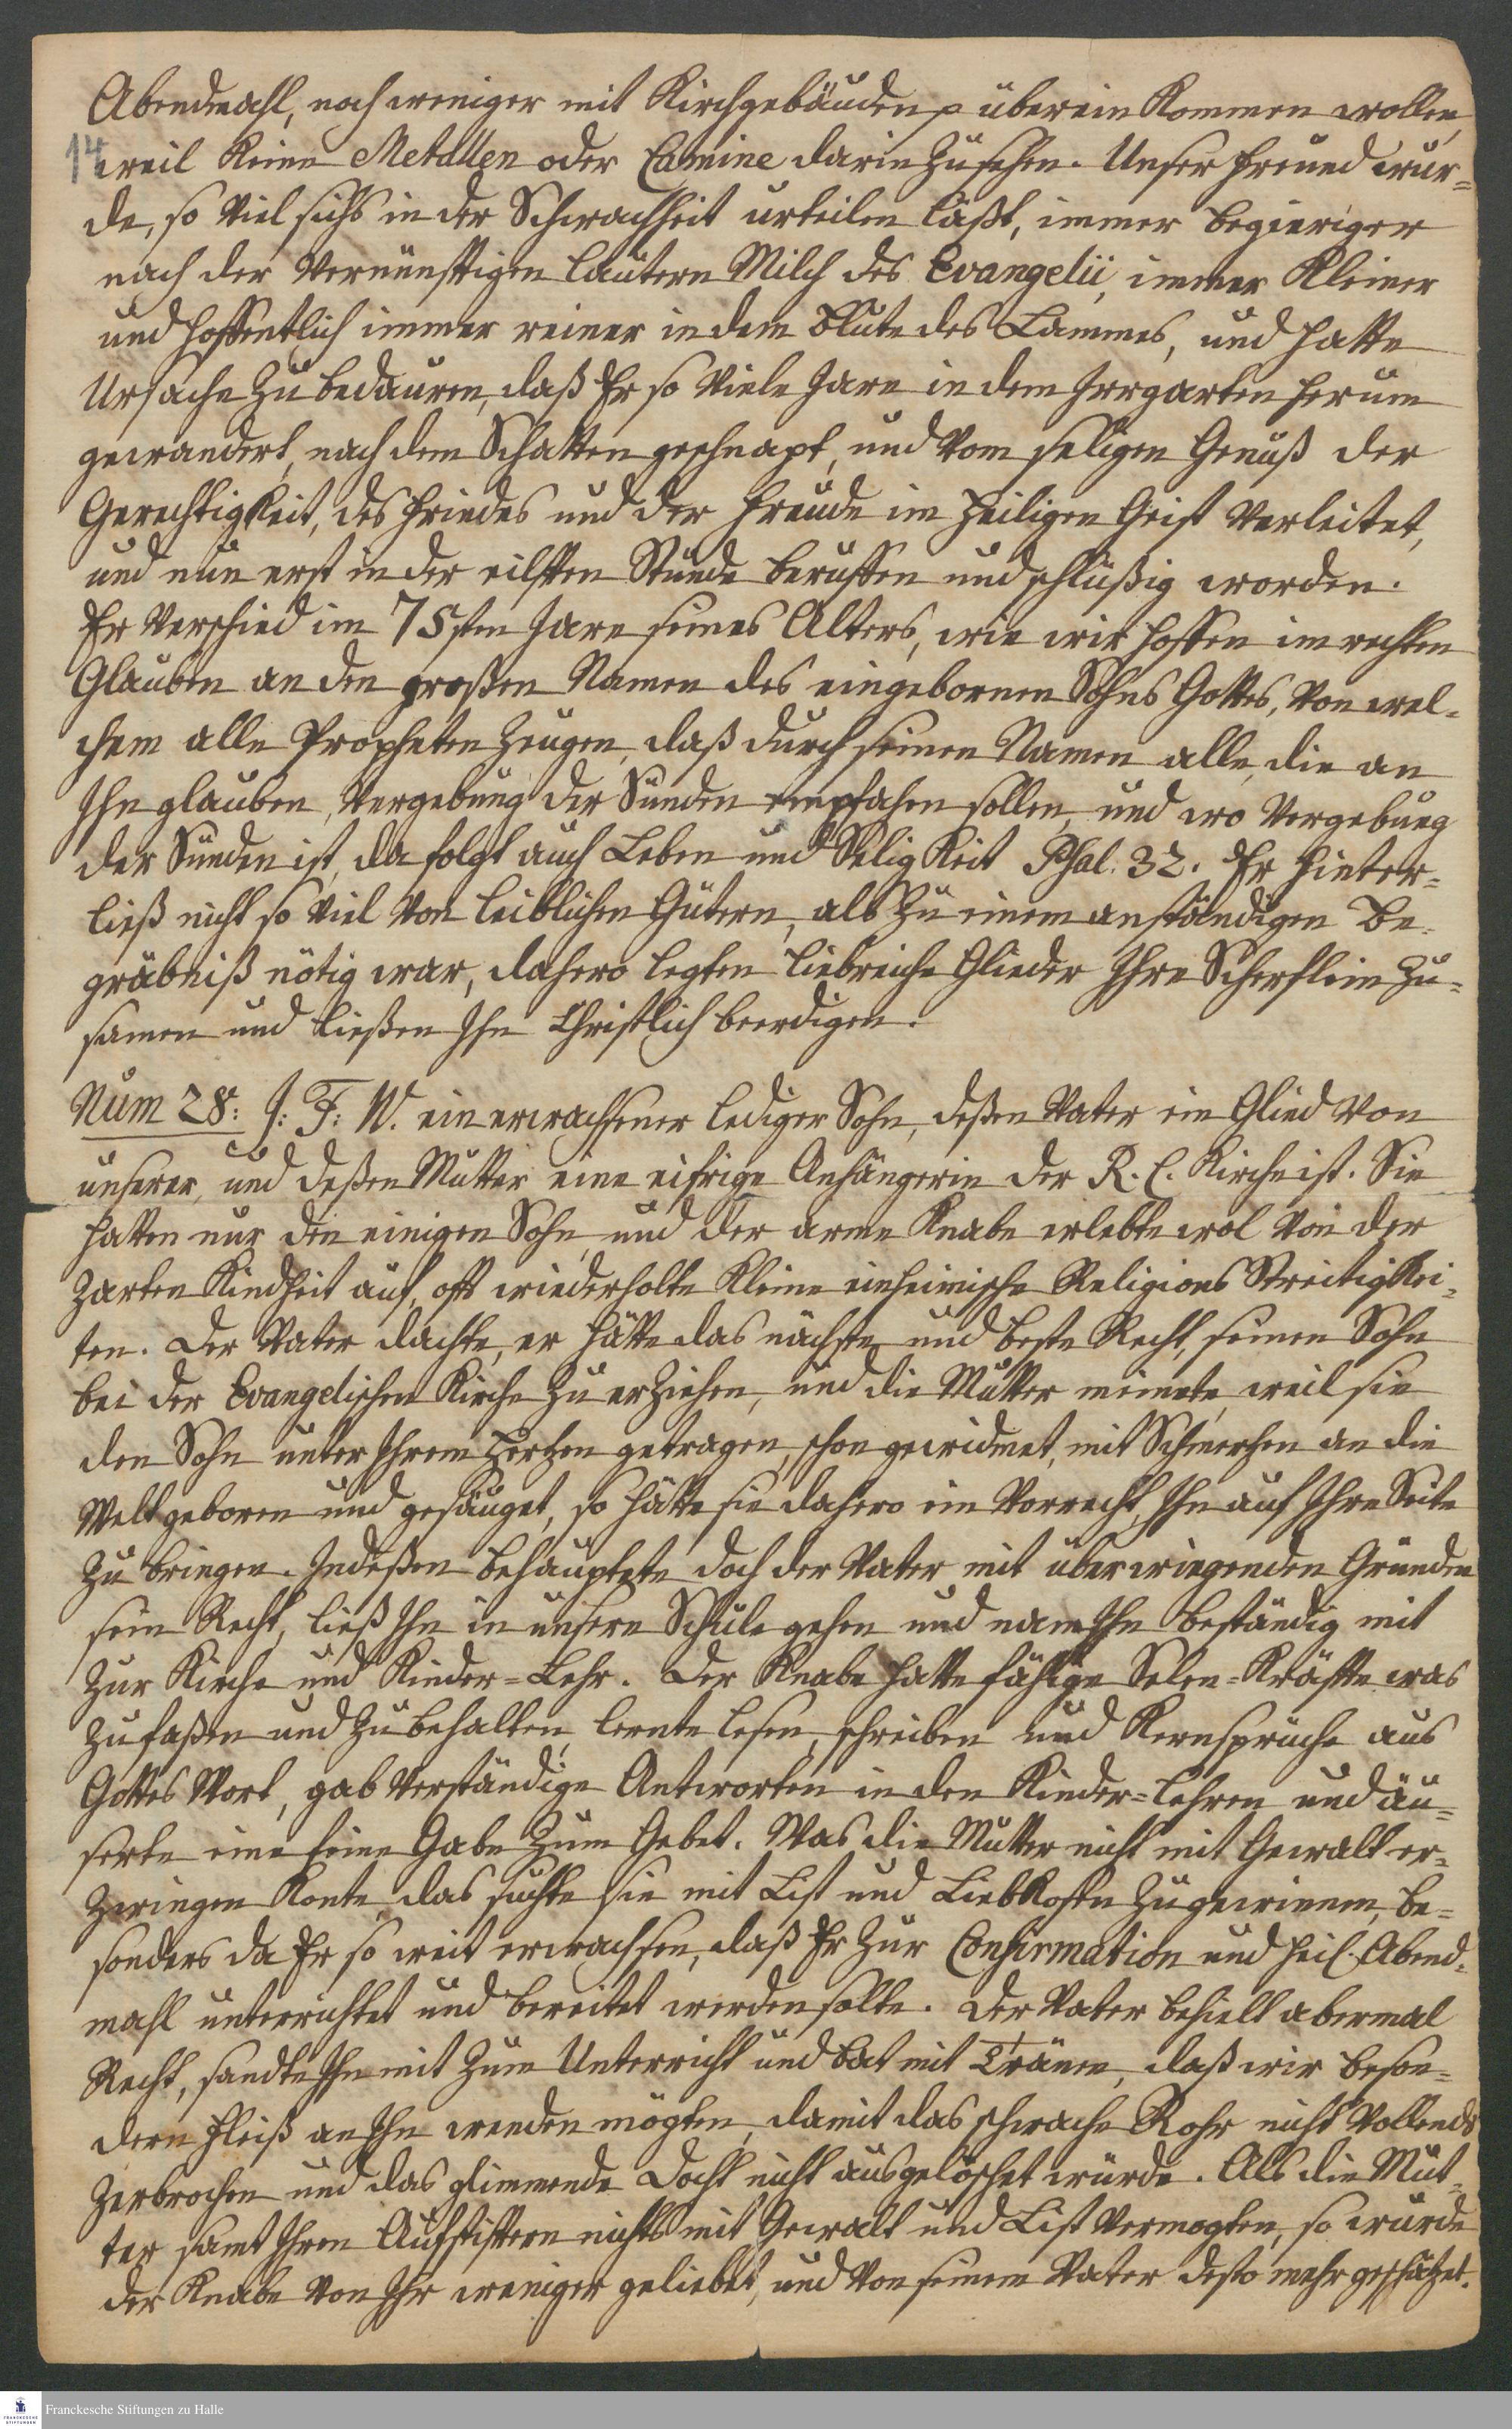 Abendmahl, noch weniger mit Kirchgebäuden p überein kommen wollen,
14
weil keine Metallen oder Camine darin zu sehen. Unser Freund wur=
de, so viel sichs in der Schwachheit urteilen läßt, immer begieriger
nach der vernünfftigen lautern Milch des Evangelii, immer kleiner
und hoffentlich immer reiner in dem Blute des Lammes, und hatte
Ursache zu bedauren, daß Er so viele Jare in dem Irrgarten herum
gewandert, nach dem Schatten geschnapt, und vom seligen Genuß der
Gerechtigkeit, des Friedes und der Freude im Heiligen Geist verleitet,
und nun erst in der eilfften Stunde beruffen und schlüßig worden.
Er verschied im 75sten Jare seines Alters, wie wir hoffen im rechten
Glauben an den großen Namen des eingebornen Sohns Gottes, von wel=
chem alle Propheten zeugen, daß durch seinen Namen alle, die an
Ihn glauben, Vergebung der Sünden empfahen sollen, und wo Vergebung
der Sünden ist, da folgt auch Leben und Seligkeit Psal. 32. Er hinter=
ließ nicht so viel von leiblichen Gütern, als zu einem anständigen Be=
gräbniß nötig war, dahero legten liebreiche Glieder Ihre Scherflein zu=
samen und ließen Ihn Christlich beerdigen.
Num 28: J: F: W. ein erwachsener lediger Sohn, deßen Vater ein Glied von
unserer, und deßen Mutter eine eifrige Anhängerin der R. C. Kirche ist. Sie
hatten nur den einigen Sohn, und der arme Knabe erlebte wol von der
zarten Kindheit auf, offt wiederholte kleine einheimische Religions Streitigkei=
ten. Der Vater dachte, er hätte das nächste und beste Recht, seinen Sohn
bei der Evangelischen Kirche zu erziehen, und die Mutter meinete, weil sie
den Sohn unter Ihrem Hertzen getragen, schon gewidmet, mit Schmerzen an die
Welt geboren und gesäuget, so hätte sie dahero ein Vorrecht, Ihn auf Ihre Seite
zu bringen. Indeßen behauptete doch der Vater mit überwiegenden Gründen
sein Recht, ließ Ihn in unsere Schule gehen und nam Ihn beständig mit
zur Kirche und Kinder=Lehr. Der Knabe hatte fähige Selen=Kräffte was
zu faßen und zu behalten, lernte lesen, schreiben und Kernsprüche aus
Gottes Wort, gab verständige Antworten in den Kinder=Lehren und äu=
serte eine feine Gabe zum Gebet. Was die Mutter nicht mit Gewalt er=
zwingen konte, das suchte sie mit List und Liebkosen zu gewinnen, be=
sonders da Er so weit erwachsen, daß Er zur Confirmation und heil. Abend=
mahl unterrichtet und bereitet werden solte. Der Vater behielt abermal
Recht, sandte Ihn mit zum Unterricht und bat mit Tränen, daß wir beson=
dern Fleiß an Ihn wenden mögten, damit das schwache Rohr nicht vollends
zerbrochen und das glimmende Docht nicht ausgelöschet würde. Als die Mut=
ter samt Ihren Aufstiftern nichts mit Gewalt und List vermogten, so wurde
der Knabe von Ihr weniger geliebet, und von seinem Vater desto mehr geschätzet.
Franckesche Stiftungen zu Halle